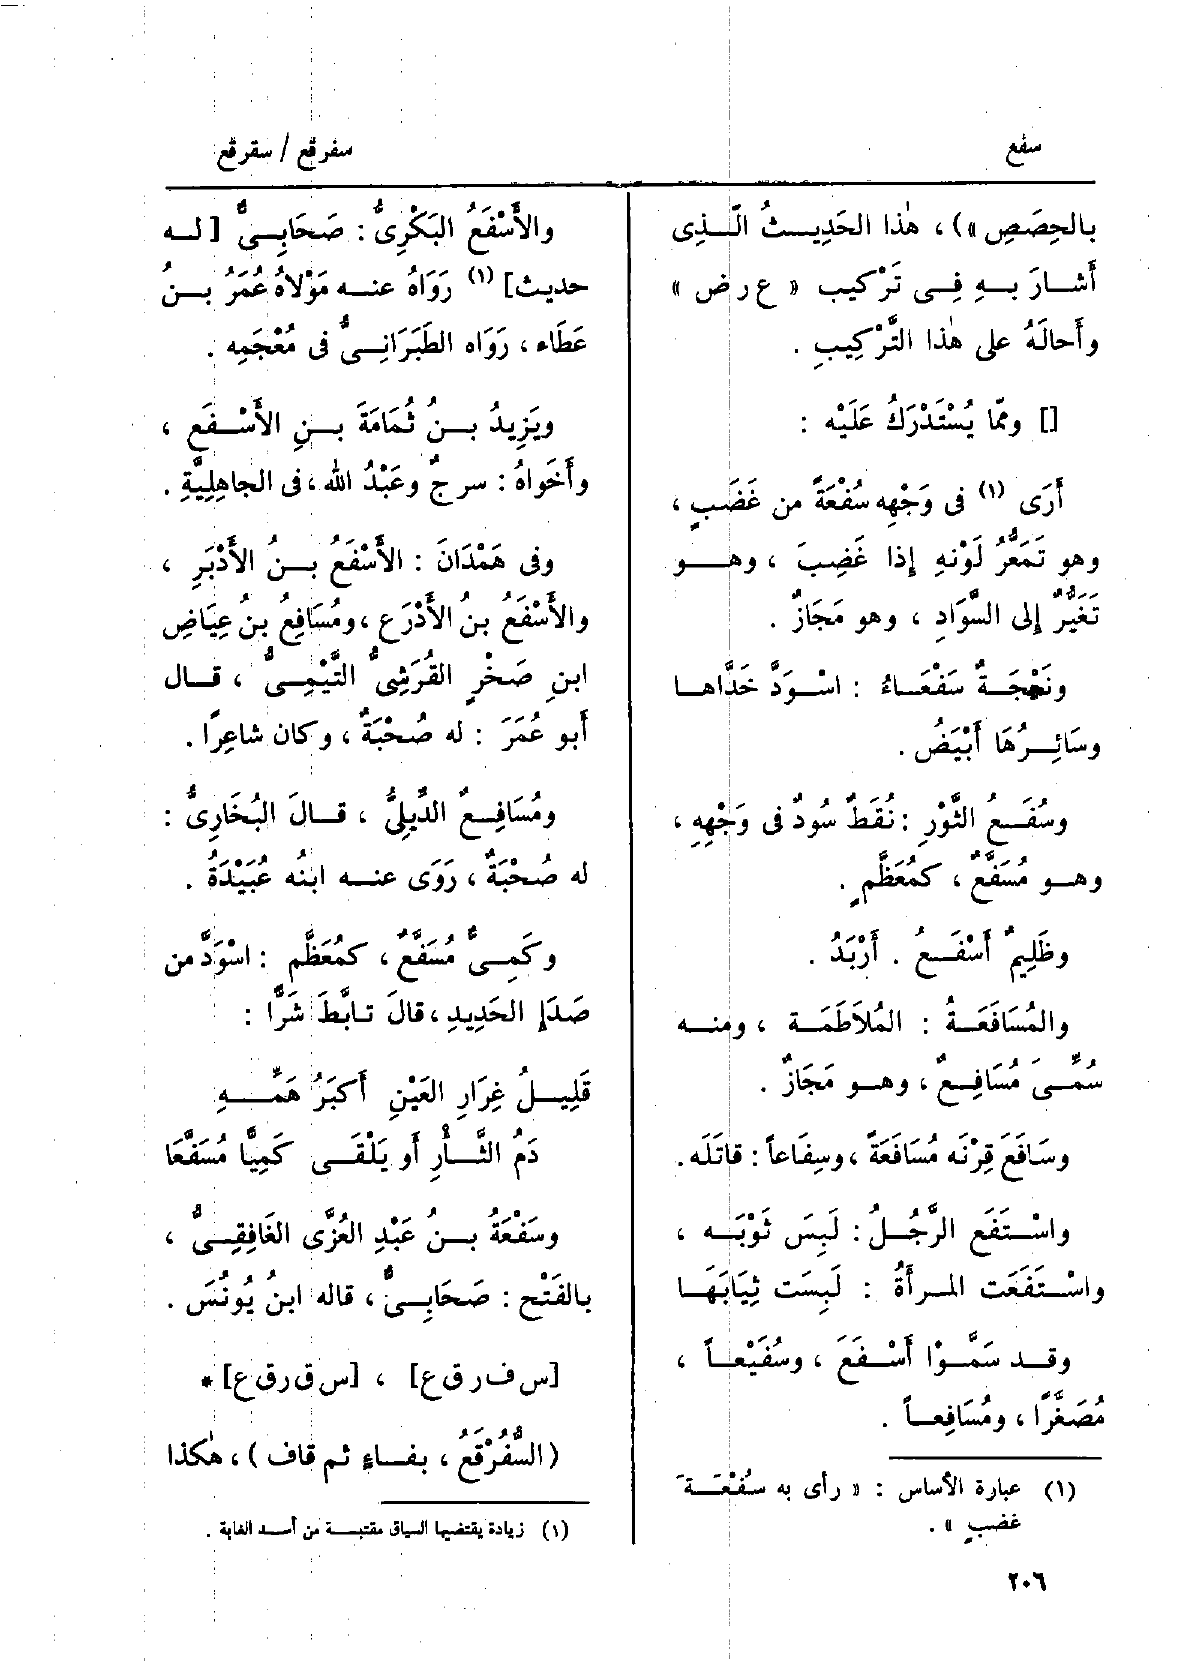 سفع
سفرقع / سقرقع
بالحِصَصِ »)، هٰذا الحَدِيثُ الَّذِى
أَشارَ بهِ فِى تَرْكيب « ع رض »
وأَحالَهُ على هٰذا التَّرْكِيبِ .
[] وممّا يُسْتَدْرَكُ عَلَيْه :
أَرَى (١) فى وَجْهِه سُفْعَةً من غَضَبٍ ،
وهو تَمَعُّرُ لَوْنهِ إذا غَضِبَ ، وهو
تَغَيُّرٌ إلى السَّوَادِ ، وهو مَجَازٌ .
ونَعْجَةٌ سَفْعَاءُ : اسْوَدَّ خَدَّاها
وسَائِرُهَا أَبْيَضُ .
وسُفَعُ الثَّوْرِ : نُقَطٌ سُودٌ فى وَجْهِهِ ،
وهو مُسَفَّعٌ ، كمُعَظَّمٍ .
وظَلِيمٌ أَسْفَعُ . أَرْبَدُ .
والمُسَافَعَةُ : المُلاَطَمَة ، ومنه
سُمِّىَ مُسَافِعٌ ، وهو مَجَازٌ .
وسَافَعَ قِرْنَه مُسَافَعَةً ، وسِفَاعاً : قاتَلَه .
واسْتَفَع الرَّجُلُ : لَبِسَ ثَوْبَه ،
واسْتَفَعَت المرأَةُ : لَبِسَت ثِيَابَهَا
وقد سَمَّوْا أَسْفَعَ ، وسُفَيْعاً ،
مُصَغَّرًا ، ومُسَافِعاً .
(١) عبارة الأساس : « رأى به سُفْعَةَ
غضبٍ » .
والأَسْفَعُ البَكْرِىُّ : صَحَابِىٌّ [ له
حديث] (١) رَوَاهُ عنه مَوْلاهُ عُمَرُ بنُ
عَطَاء ، رَوَاه الطَّبَرَانِىُّ فى مُعْجَمِه .
ويَزِيدُ بنُ ثُمَامَةَ بنِ الأَسْفَع ،
وأَخَواهُ : سرجٌ وعَبْدُ الله ، فى الجاهِلِيَّةِ .
وفى هَمْدَانَ : الأَسْفَعُ بنُ الأَدْبَرِ ،
والأَسْفَعُ بنُ الأَدْرَع ، ومُسَافِعُ بنُ عِيَاضِ
ابنِ صَخْرٍ القُرَشِىُّ التَّيْمِىُّ ، قال
أبو عُمَرَ : له صُحْبَةٌ ، وكان شاعِرًا .
ومُسَافِعٌ الدِّيلِىُّ ، قالَ البُخَارِىُّ :
له صُحْبَةٌ ، رَوَى عنه ابنُه عُبَيْدَةُ .
وكَمِىٌّ مُسَفَّعٌ ، كمُعَظَّم : اسْوَدَّ من
صَدَإِ الحَدِيدِ ، قالَ تأَبَّطَ شَرًّا :
قَلِيلُ غِرَارِ العَيْنِ أَكبَرُ هَمِّهِ
دَمُ الثَّأْرِ أو يَلْقَى كَمِيًّا مُسَفَّعَا
وسَفْعَةُ بنُ عَبْدِ العُزَّى الغَافِقِىُّ ،
بالفَتْح : صَحَابِىٌّ ، قاله ابنُ يُونُسَ .
[س ف ر ق ع] ، [س ق ر ق ع] *
(السُّفُرْقَعُ ، بفاءٍ ثم قاف )، هٰكذا
(١) زيادة يقتضيها السياق مقتبسة من أسد الغابة .
٢٠٦